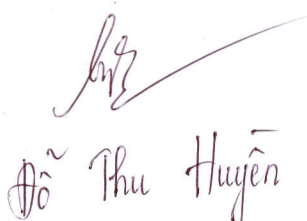 Đỗ Thu Huyền